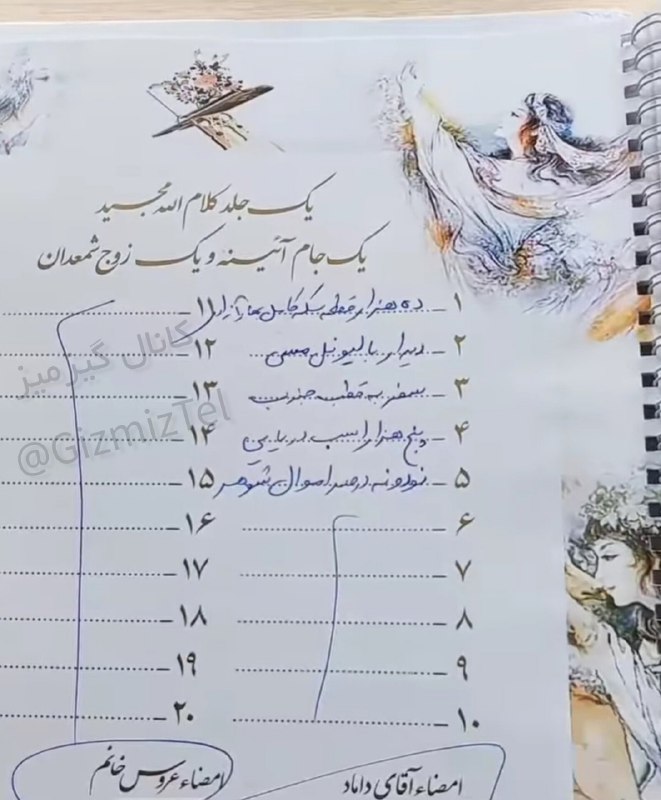 یک جلد کلام الله مجید
یک جام آئینه و یک زوج شمعدان
۱ - ده هزار قطعه سکه کامل بهار آزادی
۲ - دیدار با لیونل مسی
۳ - سفر به قطب جنوب
۴ - پنج هزار اسب دریایی
۵ - نود و نه درصد اموال شوهر
۶ -
۷ -
۸ -
۹ -
۱۰ -
۱۱ -
۱۲ -
۱۳ -
۱۴ -
۱۵ -
۱۶ -
۱۷ -
۱۸ -
۱۹ -
۲۰ -
امضاء آقای داماد
امضاء عروس خانم
کانال گیزمیز
@GizmizTel